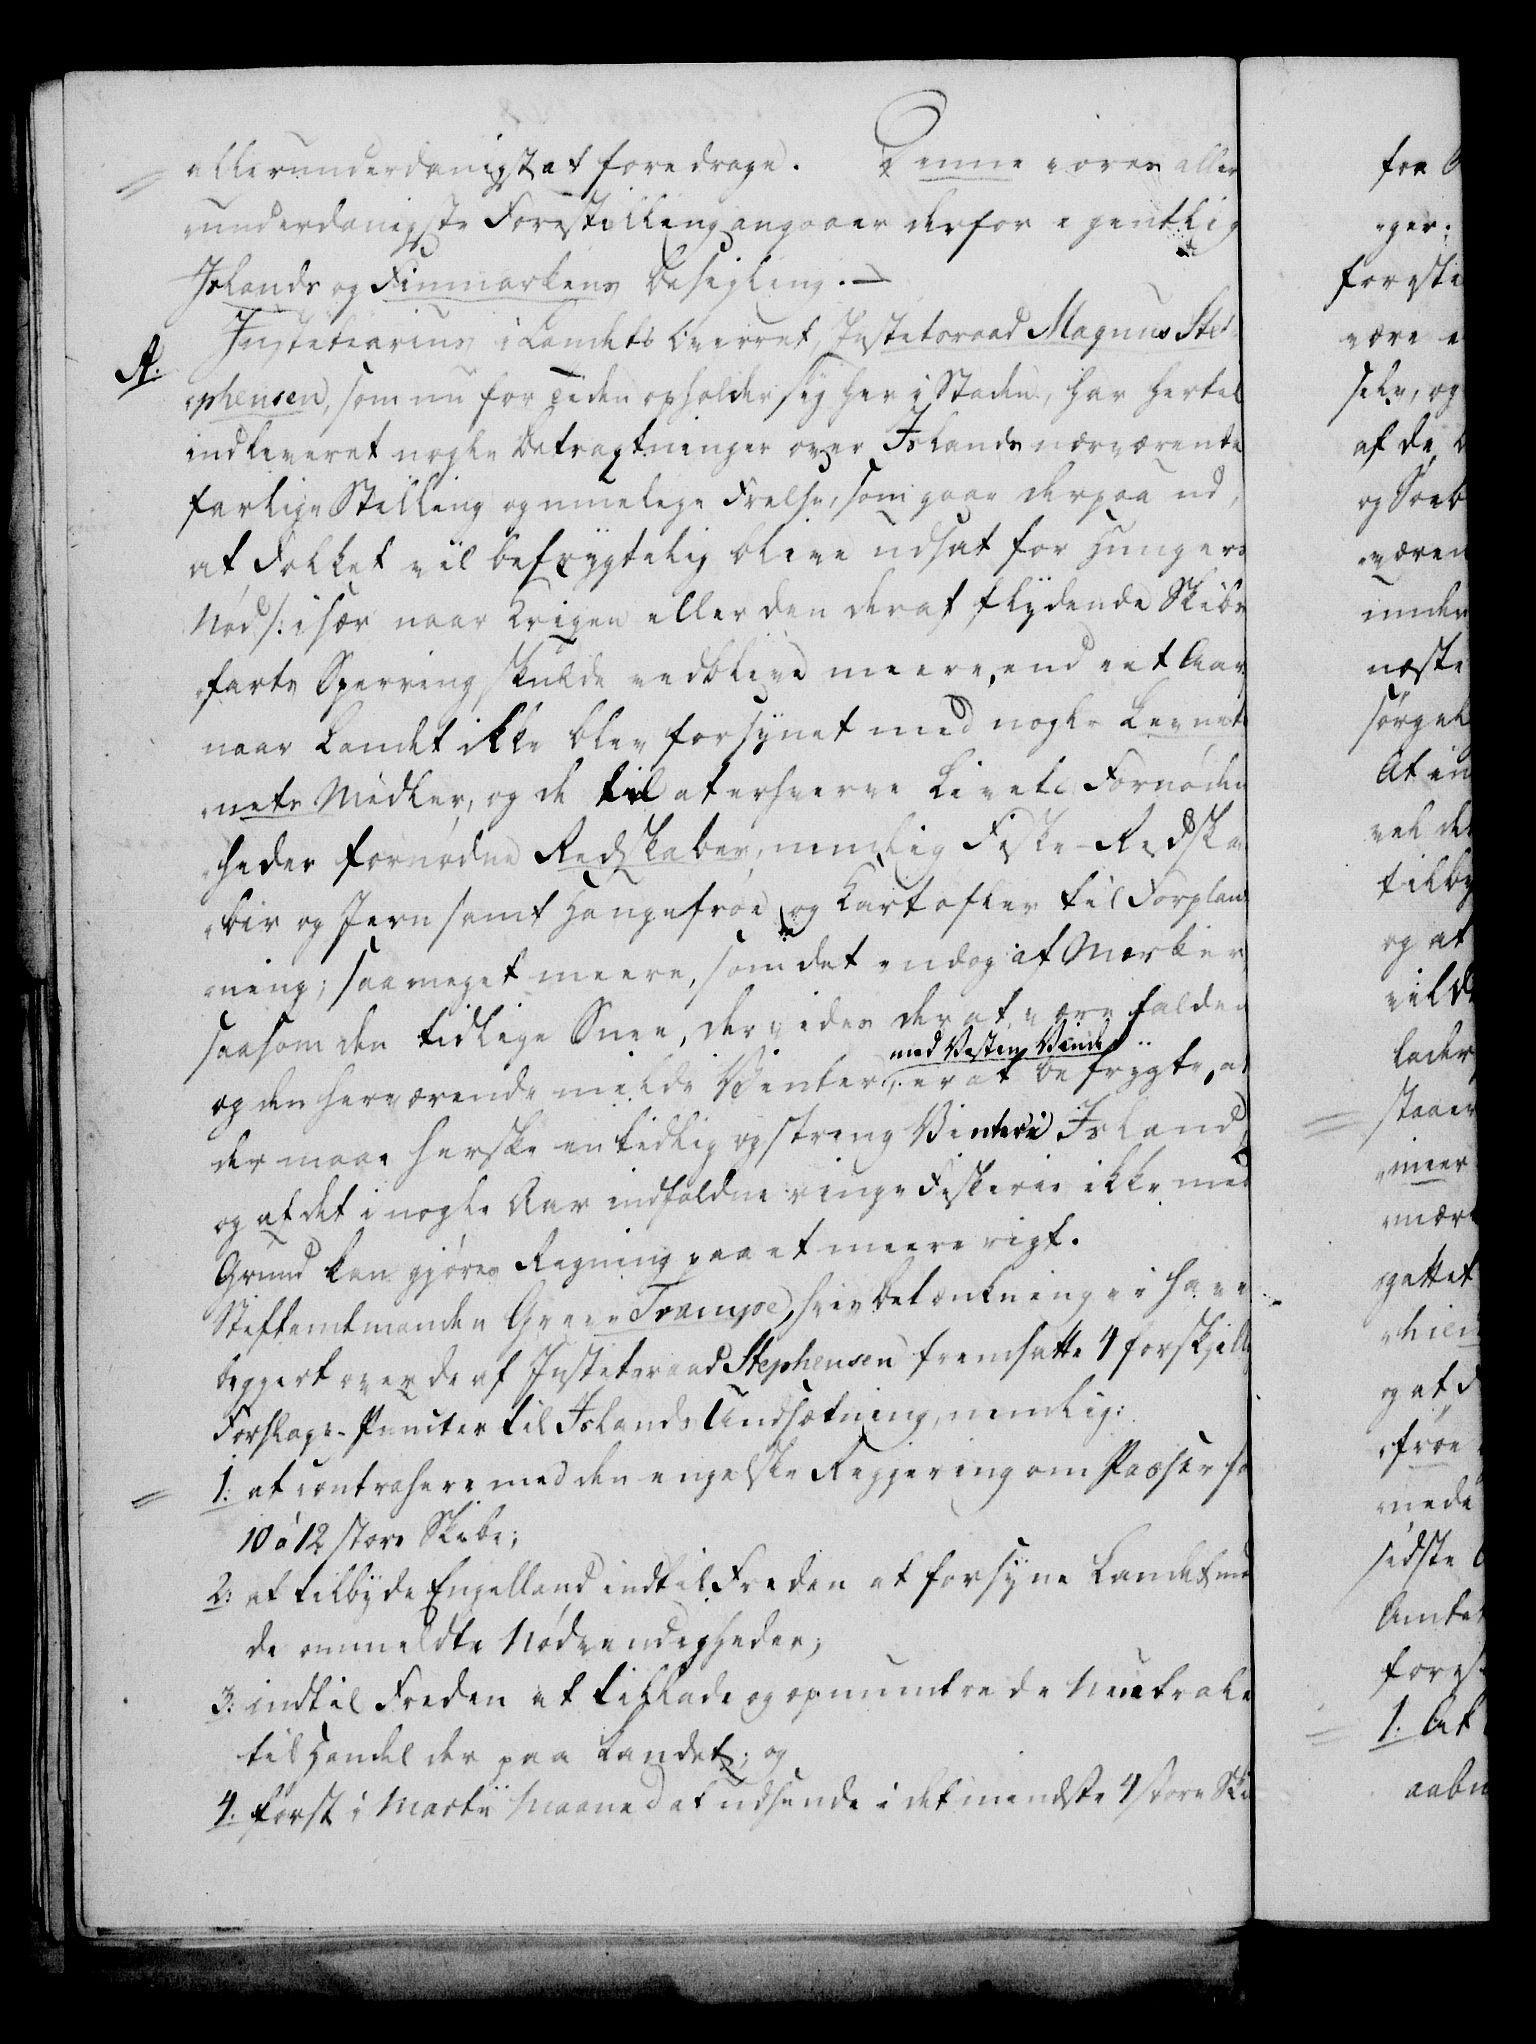 allerunderdanigst at foredrage. Denne vores aller
underdanigste Forestilling angaaer derfor egentlig
Islands og Finmarkens Besigling. —
A. Justitiarius i Landets Overret, Justitsraad Magnus Ste-
„phensen, som nu for Tiden opholder sig her i Staden, har hertil
indleveret nogle Betragtninger over Islands nærværende
farlige Stilling og muelige Frelse, som gaae derpaa ud,
at Folket vil befrygtelig blive udsat for Hungers
Nød /: især naar Krigen eller den deraf flydende Skibs
„farts Sperring skulde vedblive meere, end eet Aar,
naar Landet ikke blev forsynet med nogle Levnets
„nets Midler, og de til at erhverve Livets Fornøden
„heder fornødne Redskaber, nemlig Fiske-Redska
„ber og Jern samt Haugefrøe og Kartofler til Forplant
„ning; saameget meere, som det endog af Mærker,
saasom den tidlige Snee, der vides der at være falden
og den herværende milde Vinter, med Vesten Vinde er at befrygte, at
der maae herske en tidlig og streng Vinter i Island,
og at det i nogle Aar indfaldne ringe Fiskerie ikke med
Grund kan gjøres Regning paa et meere rigt.
Stiftamtmanden Greve Trampe, hvis Betænkning vi have
begjert over de af Justitsraad Stephensen fremsatte 4 forskjellige
Forslags-Puncter til Islands Undsætning, nemlig:
1: at contrahere med den engelske Regjering om Passer for
10 à 12 store Skibe;
2: at tilbyde Engelland indtil Freden at forsyne Landet med
de ommeldte Nødvendigheder;
3: indtil Freden at tillade og opmuntre de Neutrale
til Handel der paa Landet; og
4. først i Martii Maaned at udsende i det mindste 4 store Ski
fra
„ger.
foresti
være
selv, og
af de
og Søeb
„væren
under
næste
sørgel
At in
vel de
tilby
og at
vilde
lader
staaer
„meer
nær
„gettet
og at
„frøe
mede
sidste
Amtet
forest
1. At
aabn